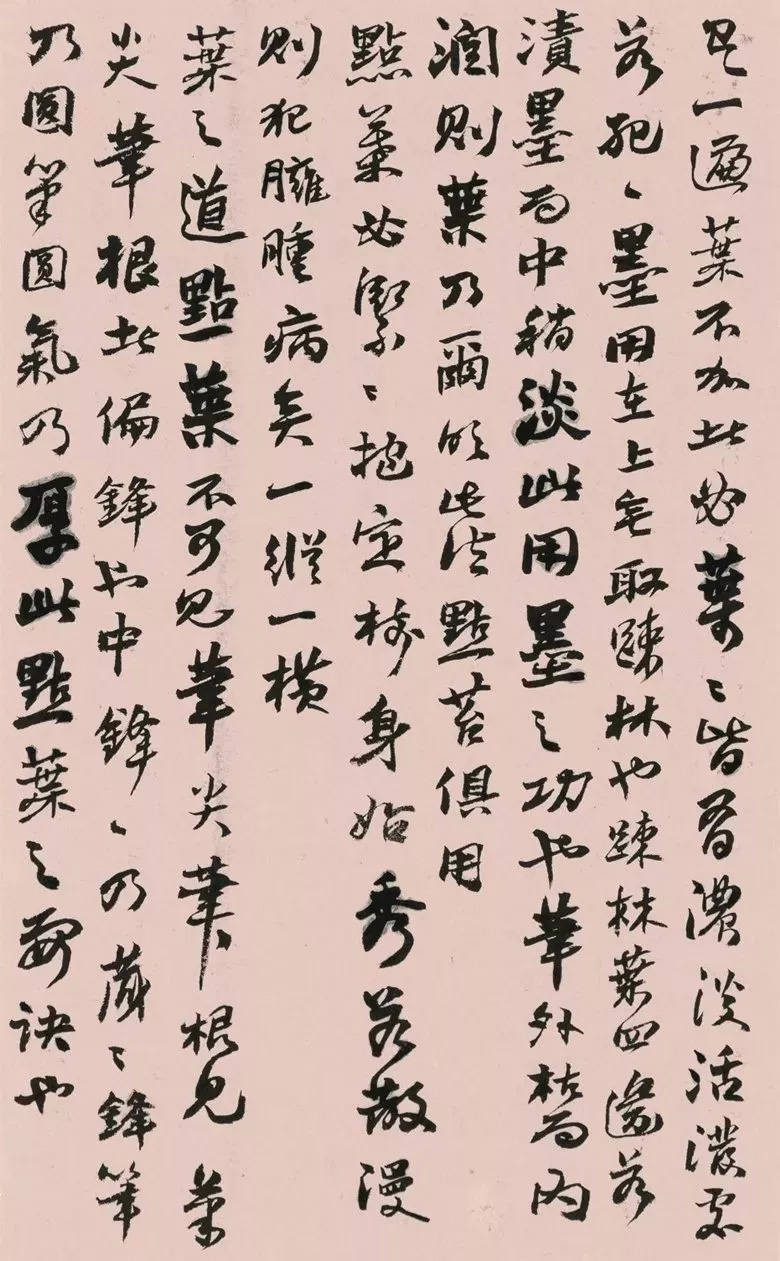 一遍葉不加者必葉〻皆有濃淡活潑處
若死〻墨用在上無取疎林也疎林葉四邊若
漬墨而中稍淡此用墨之功也筆外枯而內
潤則葉乃爾此法點苔俱用
點葉必緊〻抱定樹身始秀若散漫
則犯臃腫病矣一縱一橫
葉之道點葉不可見筆尖筆根見筆
尖筆根者偏鋒也中鋒〻乃藏〻鋒筆
乃圓筆圓氣乃厚此點葉之要訣也